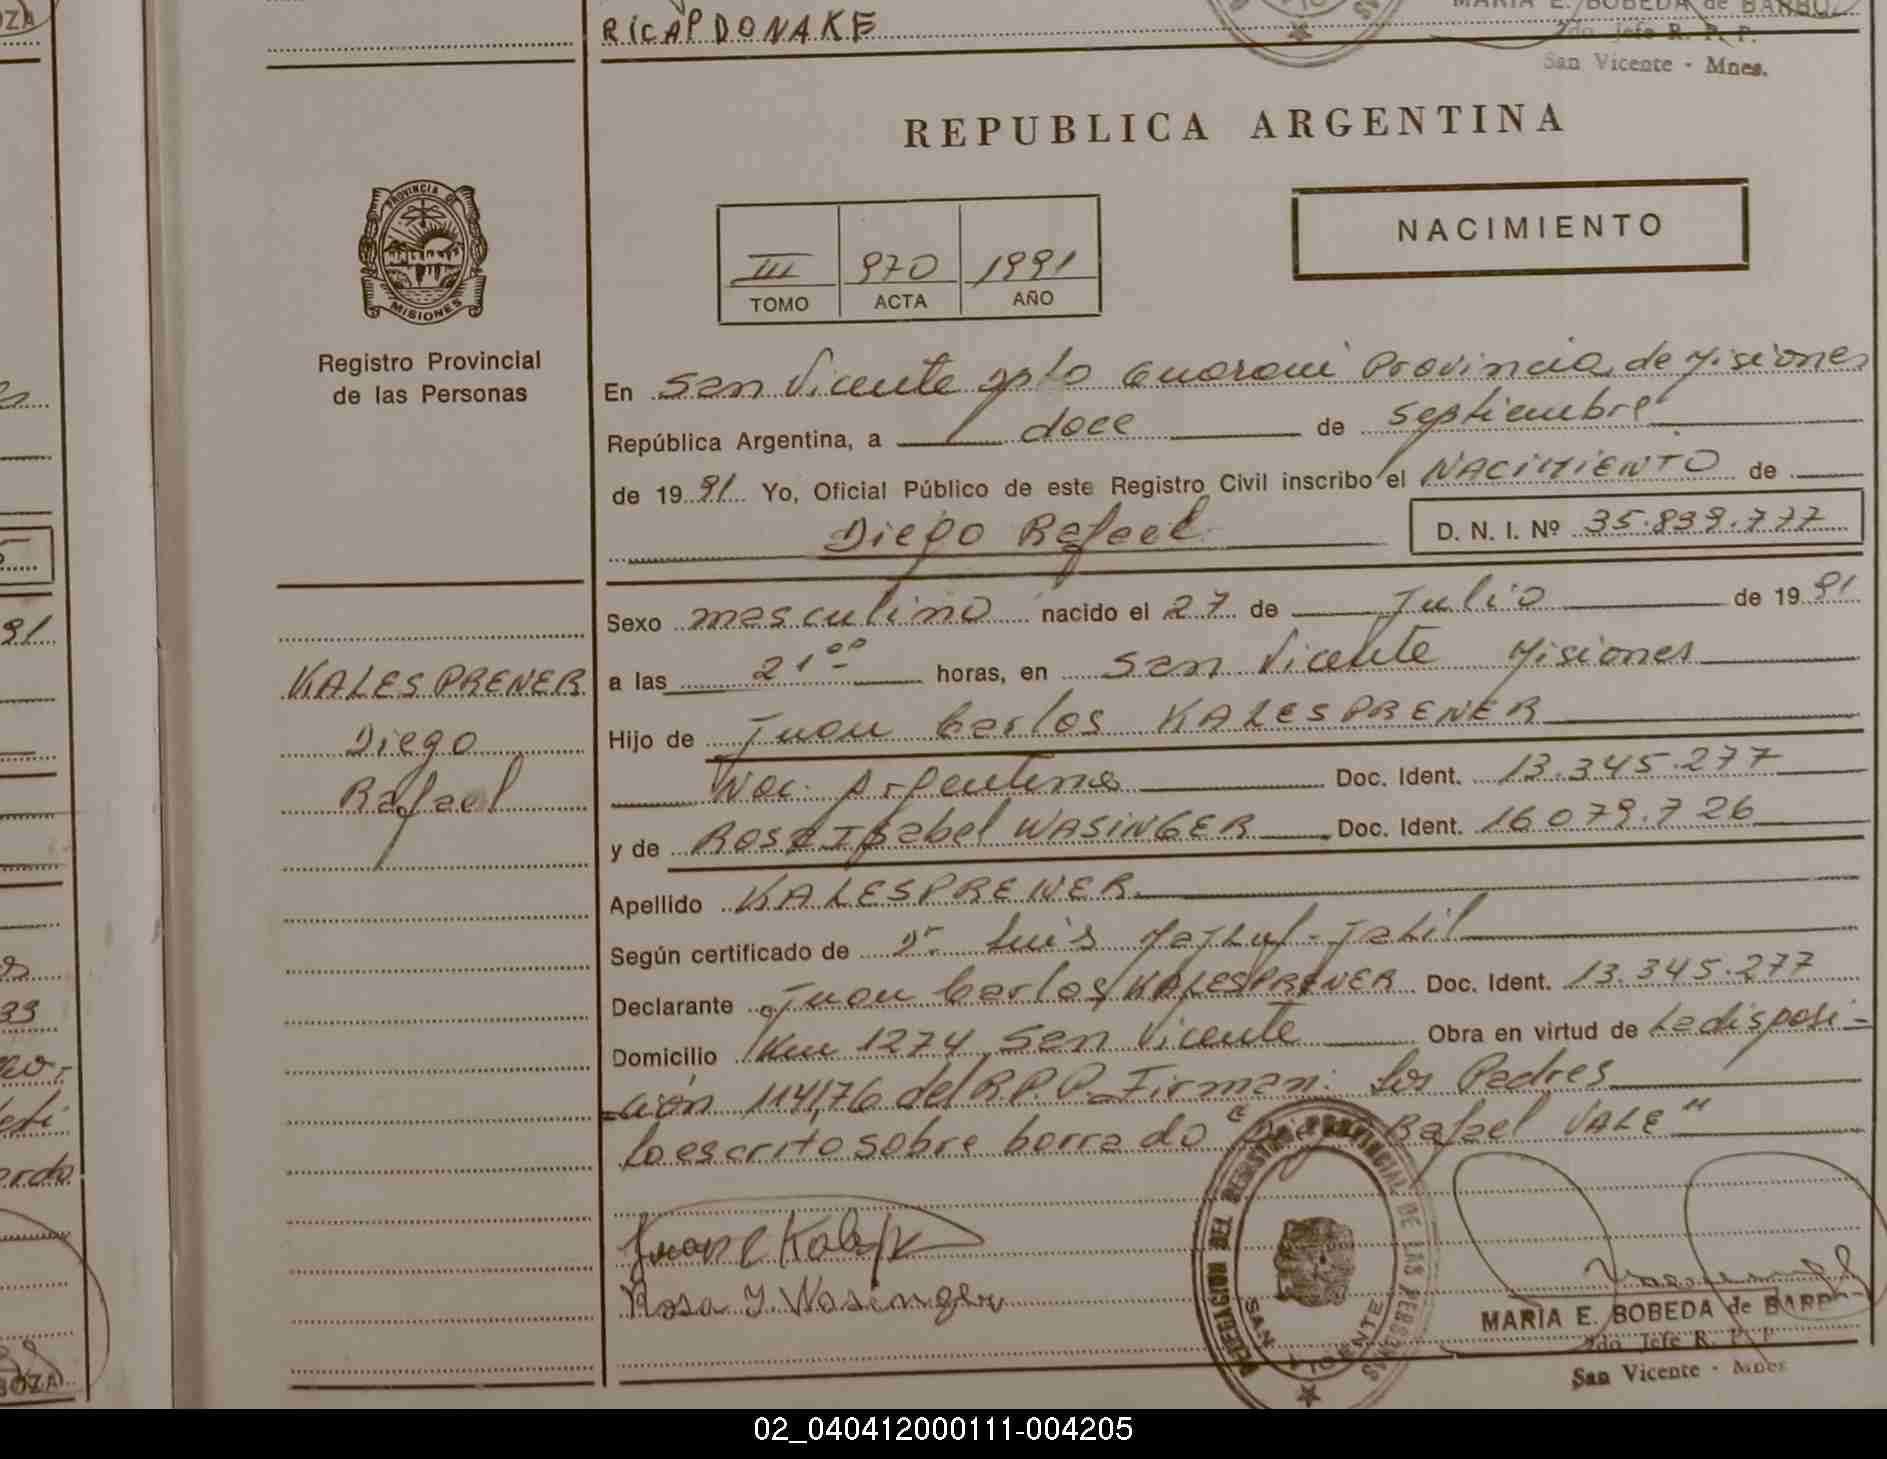 RICARDO NAKE
MARIA E. BOBEDA de BARBOZ
2do Jefe R. P. P.
San Vicente - Mnes.
REPUBLICA ARGENTINA
NACIMIENTO
III 970 1991
TOMO ACTA AÑO
PROVINCIA DE MISIONES
Registro Provincial
de las Personas
En San Vicente Dpto Guarani Provincia de Misiones
República Argentina, a doce de Septiembre
de 1991 Yo, Oficial Público de este Registro Civil inscribo el NACIMIENTO de
Diego Rafael D. N. I. Nº 35.839.777
Sexo masculino nacido el 27 de Julio de 1991
a las 21 00 horas, en San Vicente Misiones
Hijo de Juan Carlos KALESPRENER
Nac. Argentina Doc. Ident. 13.345.277
y de ROSA ISabel WASINGER Doc. Ident. 16079.726
Apellido KALESPRENER
Según certificado de Dr. Luis
Declarante Juan Carlos KALESPRENER Doc. Ident. 13.345.277
Domicilio Km 1274 San Vicente Obra en virtud de La disposi-
ción 114/76 del R.P.P. Firman: Los Padres
Lo escrito sobre borrado "Diego Rafael VALE"
KALESPRENER
Diego
Rafael
Rosa I. Wasinger
SAN VICENTE
MARIA E. BOBEDA de BARB
2do Jefe R. P. P.
San Vicente - Mnes
02_040412000111-004205